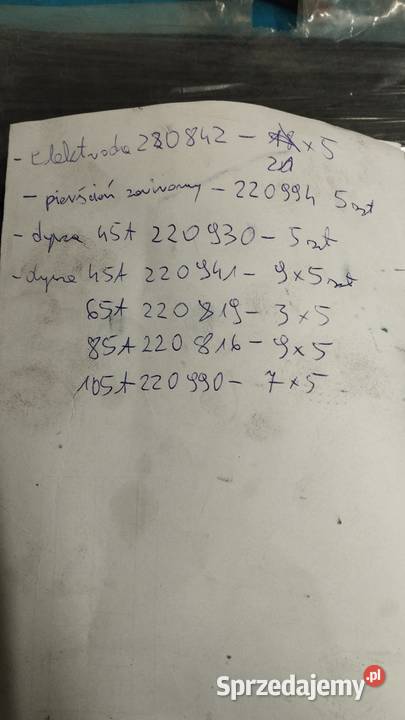 - Elektroda 220842 - x 5
20
- pierścień zawirowy - 220994 5 szt
- dysza 45A 220930 - 5 szt
- dysza 45A 220941 - 9 x 5 szt
65A 220819 - 3 x 5
85A 220816 - 9 x 5
105A 220990 - 7 x 5
Sprzedajemy.pl